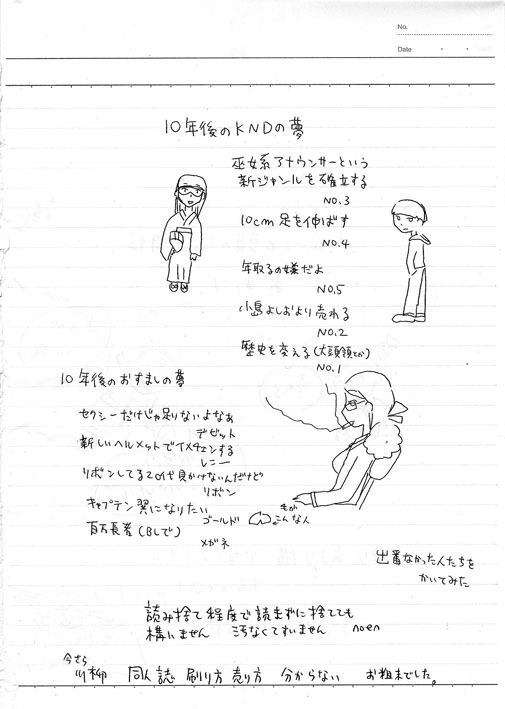 No.
Date
10年後のKNDの夢
巫女系アナウンサーという
新ジャンルを確立する
NO.3
10cm足を伸ばす
NO.4
年取るの嫌だよ
NO.5
小島よしおより売れる
NO.2
歴史を変える(大頭領とか)
NO.1
10年後のおすましの夢
セクシーだけじゃ足りないよなぁ
デビット
新しいヘルメットでイメチェンする
レニー
リボンしてる20代負かけないんだけど
リボン
キャプテン翼になりたい
ゴールド
もが
こんな人
百万長者(BLで)
メガネ
出番なかった人たちを
かいてみた
読み捨て程度で読まずに捨てても
構いません 汚なくてすいません noen
今さら
川柳 同人誌 刷り方 売り方 分からない お粗末でした。